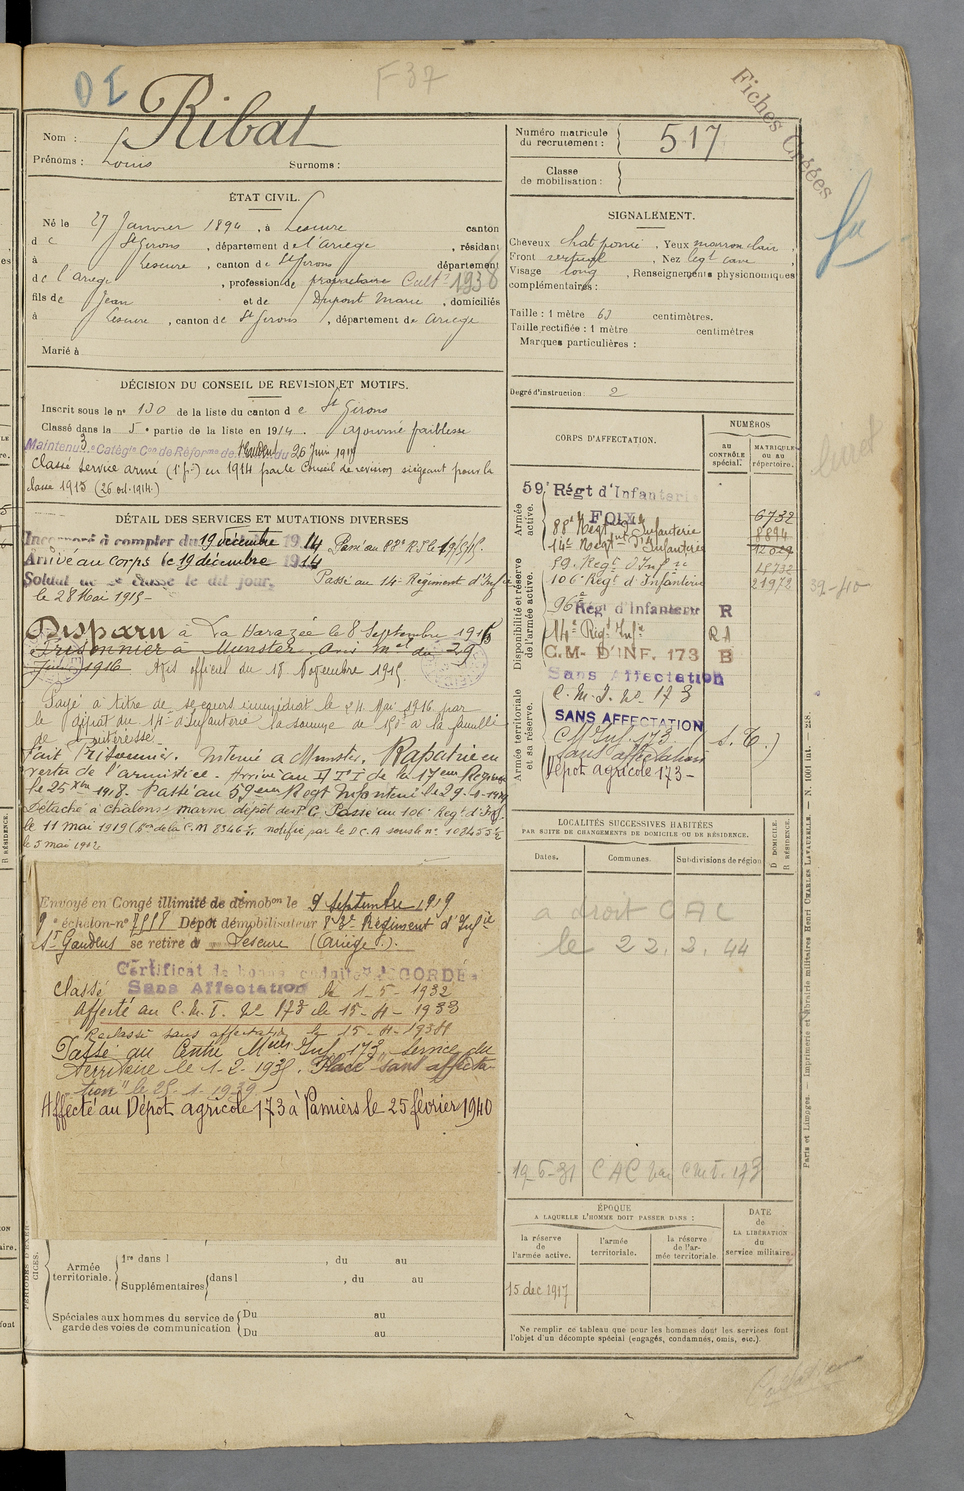 DE
F 37
Fiches Créées
Ribat
Nom :
Prénoms : Louis Surnoms :
Numéro matricule du recrutement : 517
Classe de mobilisation :
ÉTAT CIVIL.
Né le 27 Janvier 1894, à Lescure canton
de St Girons, département de l'Ariège, résidant
à Lescure, canton de St Girons département
de l'Ariège, profession de propriétaire Cult. 1938
fils de Jean et de Dupont Marie, domiciliés
à Lescure, canton de St Girons, département de Ariège
Marié à
SIGNALEMENT.
Cheveux chat foncé. Yeux marron clair,
Front vertical, Nez legt cave,
Visage long, Renseignements physionomiques
complémentaires :
Taille : 1 mètre 63 centimètres.
Taille rectifiée : 1 mètre centimètres
Marques particulières :
Degré d'instruction : 2
DÉCISION DU CONSEIL DE REVISION ET MOTIFS.
Inscrit sous le n° 130 de la liste du canton de St Girons
Classé dans la 5e partie de la liste en 1914. Ajourné faiblesse
Maintenu 3e Catégie Con de Réforme de du 26 Juin 1917
Classé service armé (1e p.) en 1914 par le Conseil de revision siégeant pour la
classe 1915 (26 oct. 1914.)
DÉTAIL DES SERVICES ET MUTATIONS DIVERSES
Incorporé à compter du 19 décembre 1914 Passé au 88e R.I. le
Arrivé au corps le 19 décembre 1914
Soldat de 2e classe le dit jour. Passé au 14e Régiment d'Inf
le 28 Mai 1915-
Disparu à La Harazée le 8 Septembre 1915
Prisonnier à Munster, Avis mel du 29
Juin 1916 Avis officiel du 18 Novembre 1915.
Payé à titre de secours immédiat le 24 Mai 1916 par
le dépôt du 14e d'Infanterie la somme de 150f à la famille
de l'intéressé
Fait Prisonnier. Interné à Munster. Rapatrié en
vertu de l'armistice. Arrivé au de la 17eme Région
le 25 Xbre 1918. Passé au 59eme Regt Infanterie le 29-1-1919
Détaché à Chalons s marne dépôt des P.G. Passé au 106e Régt d'Inf.
le 11 mai 1919 de la C.M 8346 notifiée par le D.C.A sous le n° 108455
le 5 mai 1919
Envoyé en Congé illimité de démobon le 9 Septembre 1919
9e échelon-n° Dépôt démobilisateur 83e Régiment d'Infie
St Gaudens se retire à Lescure (Ariège).
Certificat de bonne conduite ACCORDÉ
Classé Sans Affectation le 1-5-1932
Affecté au C.M.I. N° 173 le 15-4-1933
Reclassé sans affectation le 15-4-1934
Passé au Centre Meur Inf 173 service du
territoire le 1-2-1935. Placé "sans affecta-
tion" le 25-1-1939
Affecté au Dépôt agricole 173 à Pamiers le 25 février 1940
PÉRIODES D'EXERCICES.
Armée territoriale. 1re dans l , du au
Supplémentaires dans l , du au
Spéciales aux hommes du service de garde des voies de communication Du au
Du au
CORPS D'AFFECTATION.
NUMÉROS
au CONTRÔLE spécial.
MATRICULE ou au répertoire.
Armée active.
59e Régt d'Infanterie
FOIX 6732
88e Régt d'Infanterie 8894
14e Régt d'Infanterie 12029
Disponibilité et réserve de l'armée active.
59. Régt d'Infie 15732
106e Régt d'Infanterie 21972
39-40
96e Régt d'Infanterie R
14e Régt Infie RA
C.M. D'INF. 173 B
Sans Affectation
Armée territoriale et sa réserve.
C.M.I. N° 173
SANS AFFECTATION
CM Inf. 173 S.T.)
Sans affectation
Dépôt agricole 173-
LOCALITÉS SUCCESSIVES HABITÉES
PAR SUITE DE CHANGEMENTS DE DOMICILE OU DE RÉSIDENCE.
Dates. Communes. Subdivisions de région
D DOMICILE. R RÉSIDENCE.
a droit CAC
le 22.2.44
19-6-31 CAC CMI. 173
ÉPOQUE
A LAQUELLE L'HOMME DOIT PASSER DANS :
la réserve de l'armée active. l'armée territoriale. la réserve de l'armée territoriale
DATE de LA LIBÉRATION du service militaire.
15 dec 1917
Ne remplir ce tableau que pour les hommes dont les services font
l'objet d'un décompte spécial (engagés, condamnés, omis, etc.).
Paris et Limoges. — Imprimerie et librairie militaires Henri CHARLES LAVAUZELLE. — N. 1001 int. — 228.